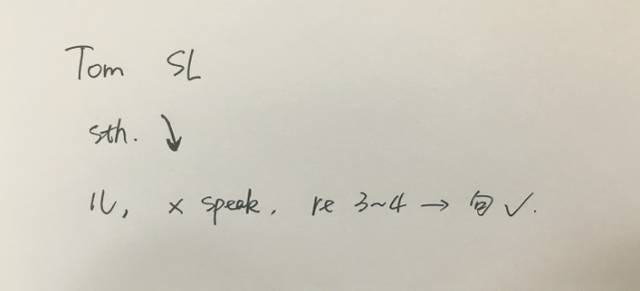 Tom SL
sth. ↘
儿, × speak. re 3~4 → 句 ✓.